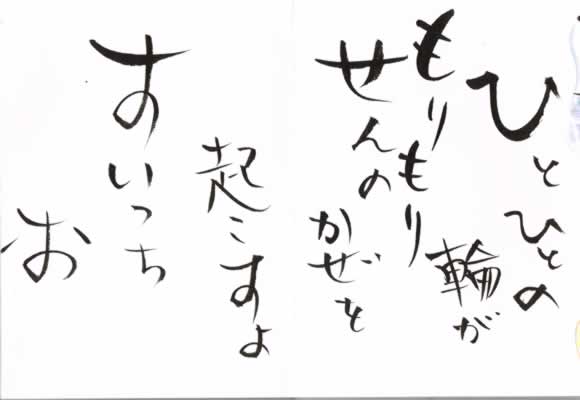 ひとひとの
輪が
もりもり
せんの
かぜを
起こすよ
すいっち
お